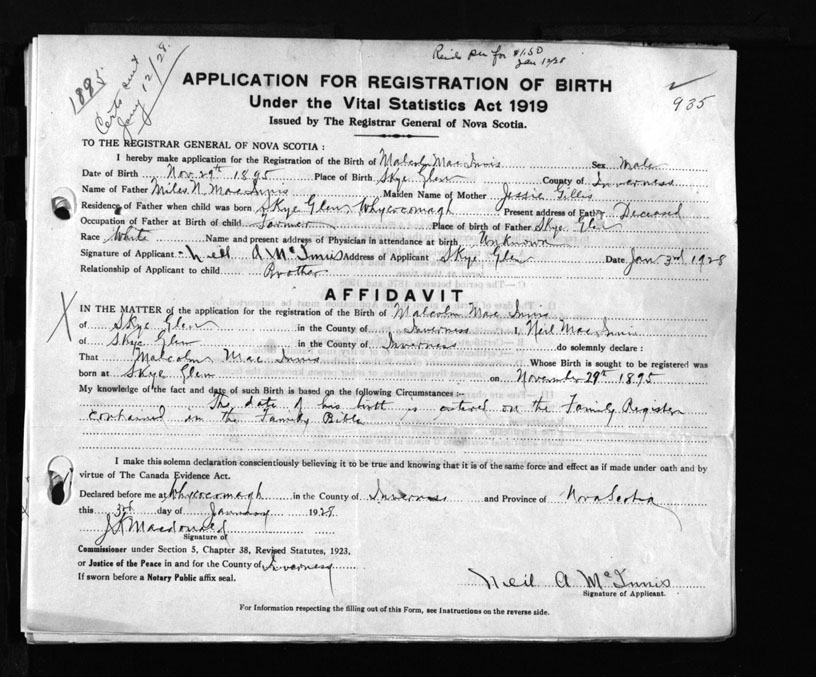 1895
Certs sent
Jany 12/28.
for $1.50
Jan 12/28
935
APPLICATION FOR REGISTRATION OF BIRTH
Under the Vital Statistics Act 1919
Issued by The Registrar General of Nova Scotia.
TO THE REGISTRAR GENERAL OF NOVA SCOTIA :
I hereby make application for the Registration of the Birth of Malcolm Mac Innis Sex Male
Date of Birth Nov 29th 1895 Place of Birth Skye Glen County of Inverness
Name of Father Miles N. MacInnis Maiden Name of Mother Jessie Gillis
Residence of Father when child was born Skye Glen Whycocomagh Present address of Father Deceased
Occupation of Father at Birth of child Farmer Place of birth of Father Skye Glen
Race White Name and present address of Physician in attendance at birth Unknown
Signature of Applicant Neil A McInnis Address of Applicant Skye Glen Date Jan 3rd 1928
Relationship of Applicant to child Brother
AFFIDAVIT
IN THE MATTER of the application for the registration of the Birth of Malcolm Mac Innis
of Skye Glen in the County of Inverness I, Neil Mac Innis
of Skye Glen in the County of Inverness do solemnly declare :
That Malcolm Mac Innis Whose Birth is sought to be registered was
born at Skye Glen on November 29th 1895
My knowledge of the fact and date of such Birth is based on the following Circumstances :-
The date of his birth is entered on the Family Register
contained in the Family Bible
I make this solemn declaration conscientiously believing it to be true and knowing that it is of the same force and effect as if made under oath and by
virtue of The Canada Evidence Act.
Declared before me at Whycocomagh in the County of Inverness and Province of Nova Scotia
this 3rd day of January 1928
Macdonald
Signature of
Commissioner under Section 5, Chapter 38, Revised Statutes, 1923,
or Justice of the Peace in and for the County of Inverness
If sworn before a Notary Public affix seal.
Neil A McInnis
Signature of Applicant.
For Information respecting the filling out of this Form, see Instructions on the reverse side.